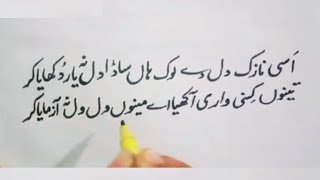 اَسی نازک دل دے لوک ہاں ساڈا دل نہ یار دکھایا کر
تینوں کِنی واری آکھیا اے مینوں ول ول نہ آزمایا کر